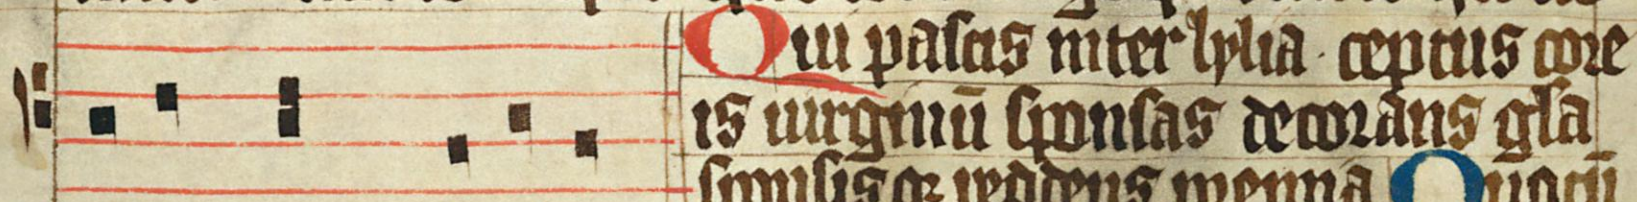 Qui pascis inter lylia · ceptus core
is uirginū sponsas decorans gła
sponsis qꝫ reddens premia Quocū